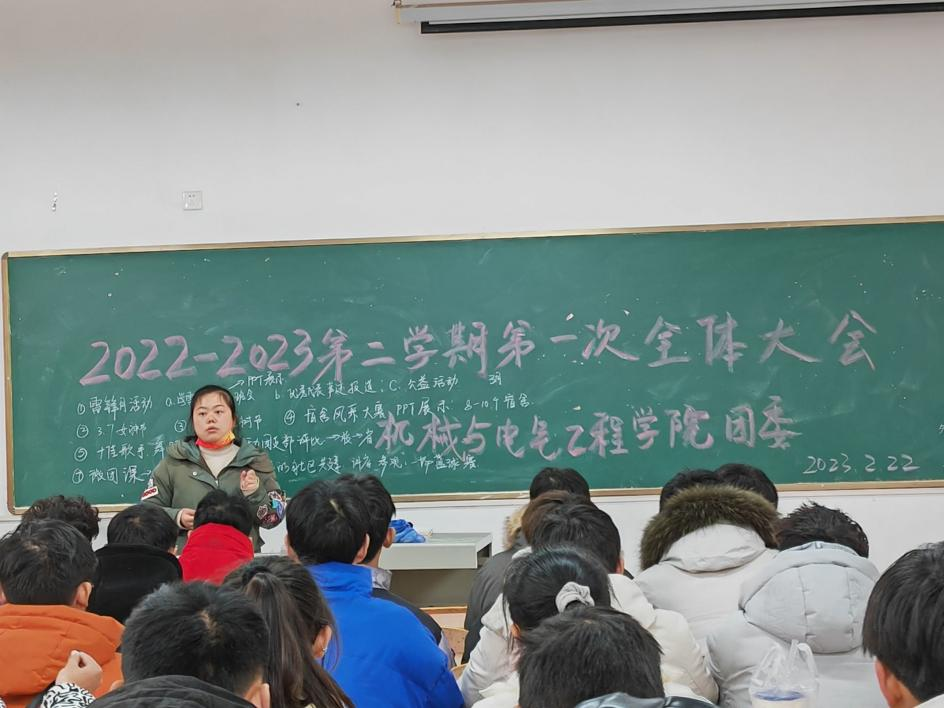 2022-2023第二学期第一次全体大会
→PPT展示
①雷锋月活动 a. 班会 b. 优秀事迹报道; C. 公益活动 3月
② 3.7女神节 ③ 树节 ④ 宿舍风采大赛 PPT展示: 8-10个宿舍.
机械与电气工程学院团委
⑤ 十佳歌手. 团支部评比→校→省
⑦ 微团课→ 的社区共建 讲座 参观. 一师篮球赛
2023.2.22